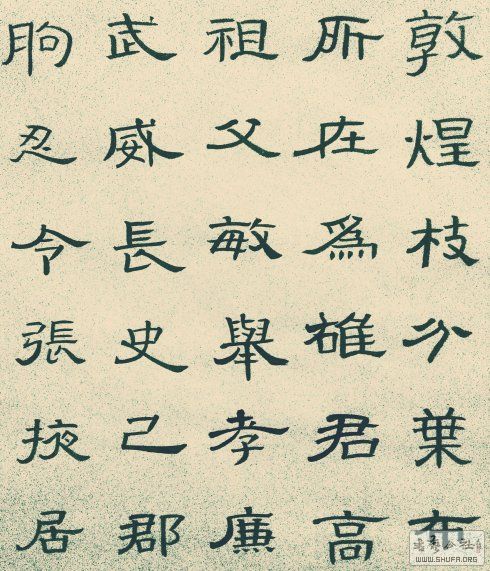 敦煌枝分葉布
所在爲雄君高
祖父敏舉孝廉
武威長史己郡
朐忍令張掖居
WWW.SHUFA.ORG